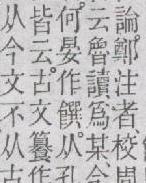 論鄭注者校周
云魯讀爲某今
何晏作饌从孔
皆云古文籑作
从今文不从古